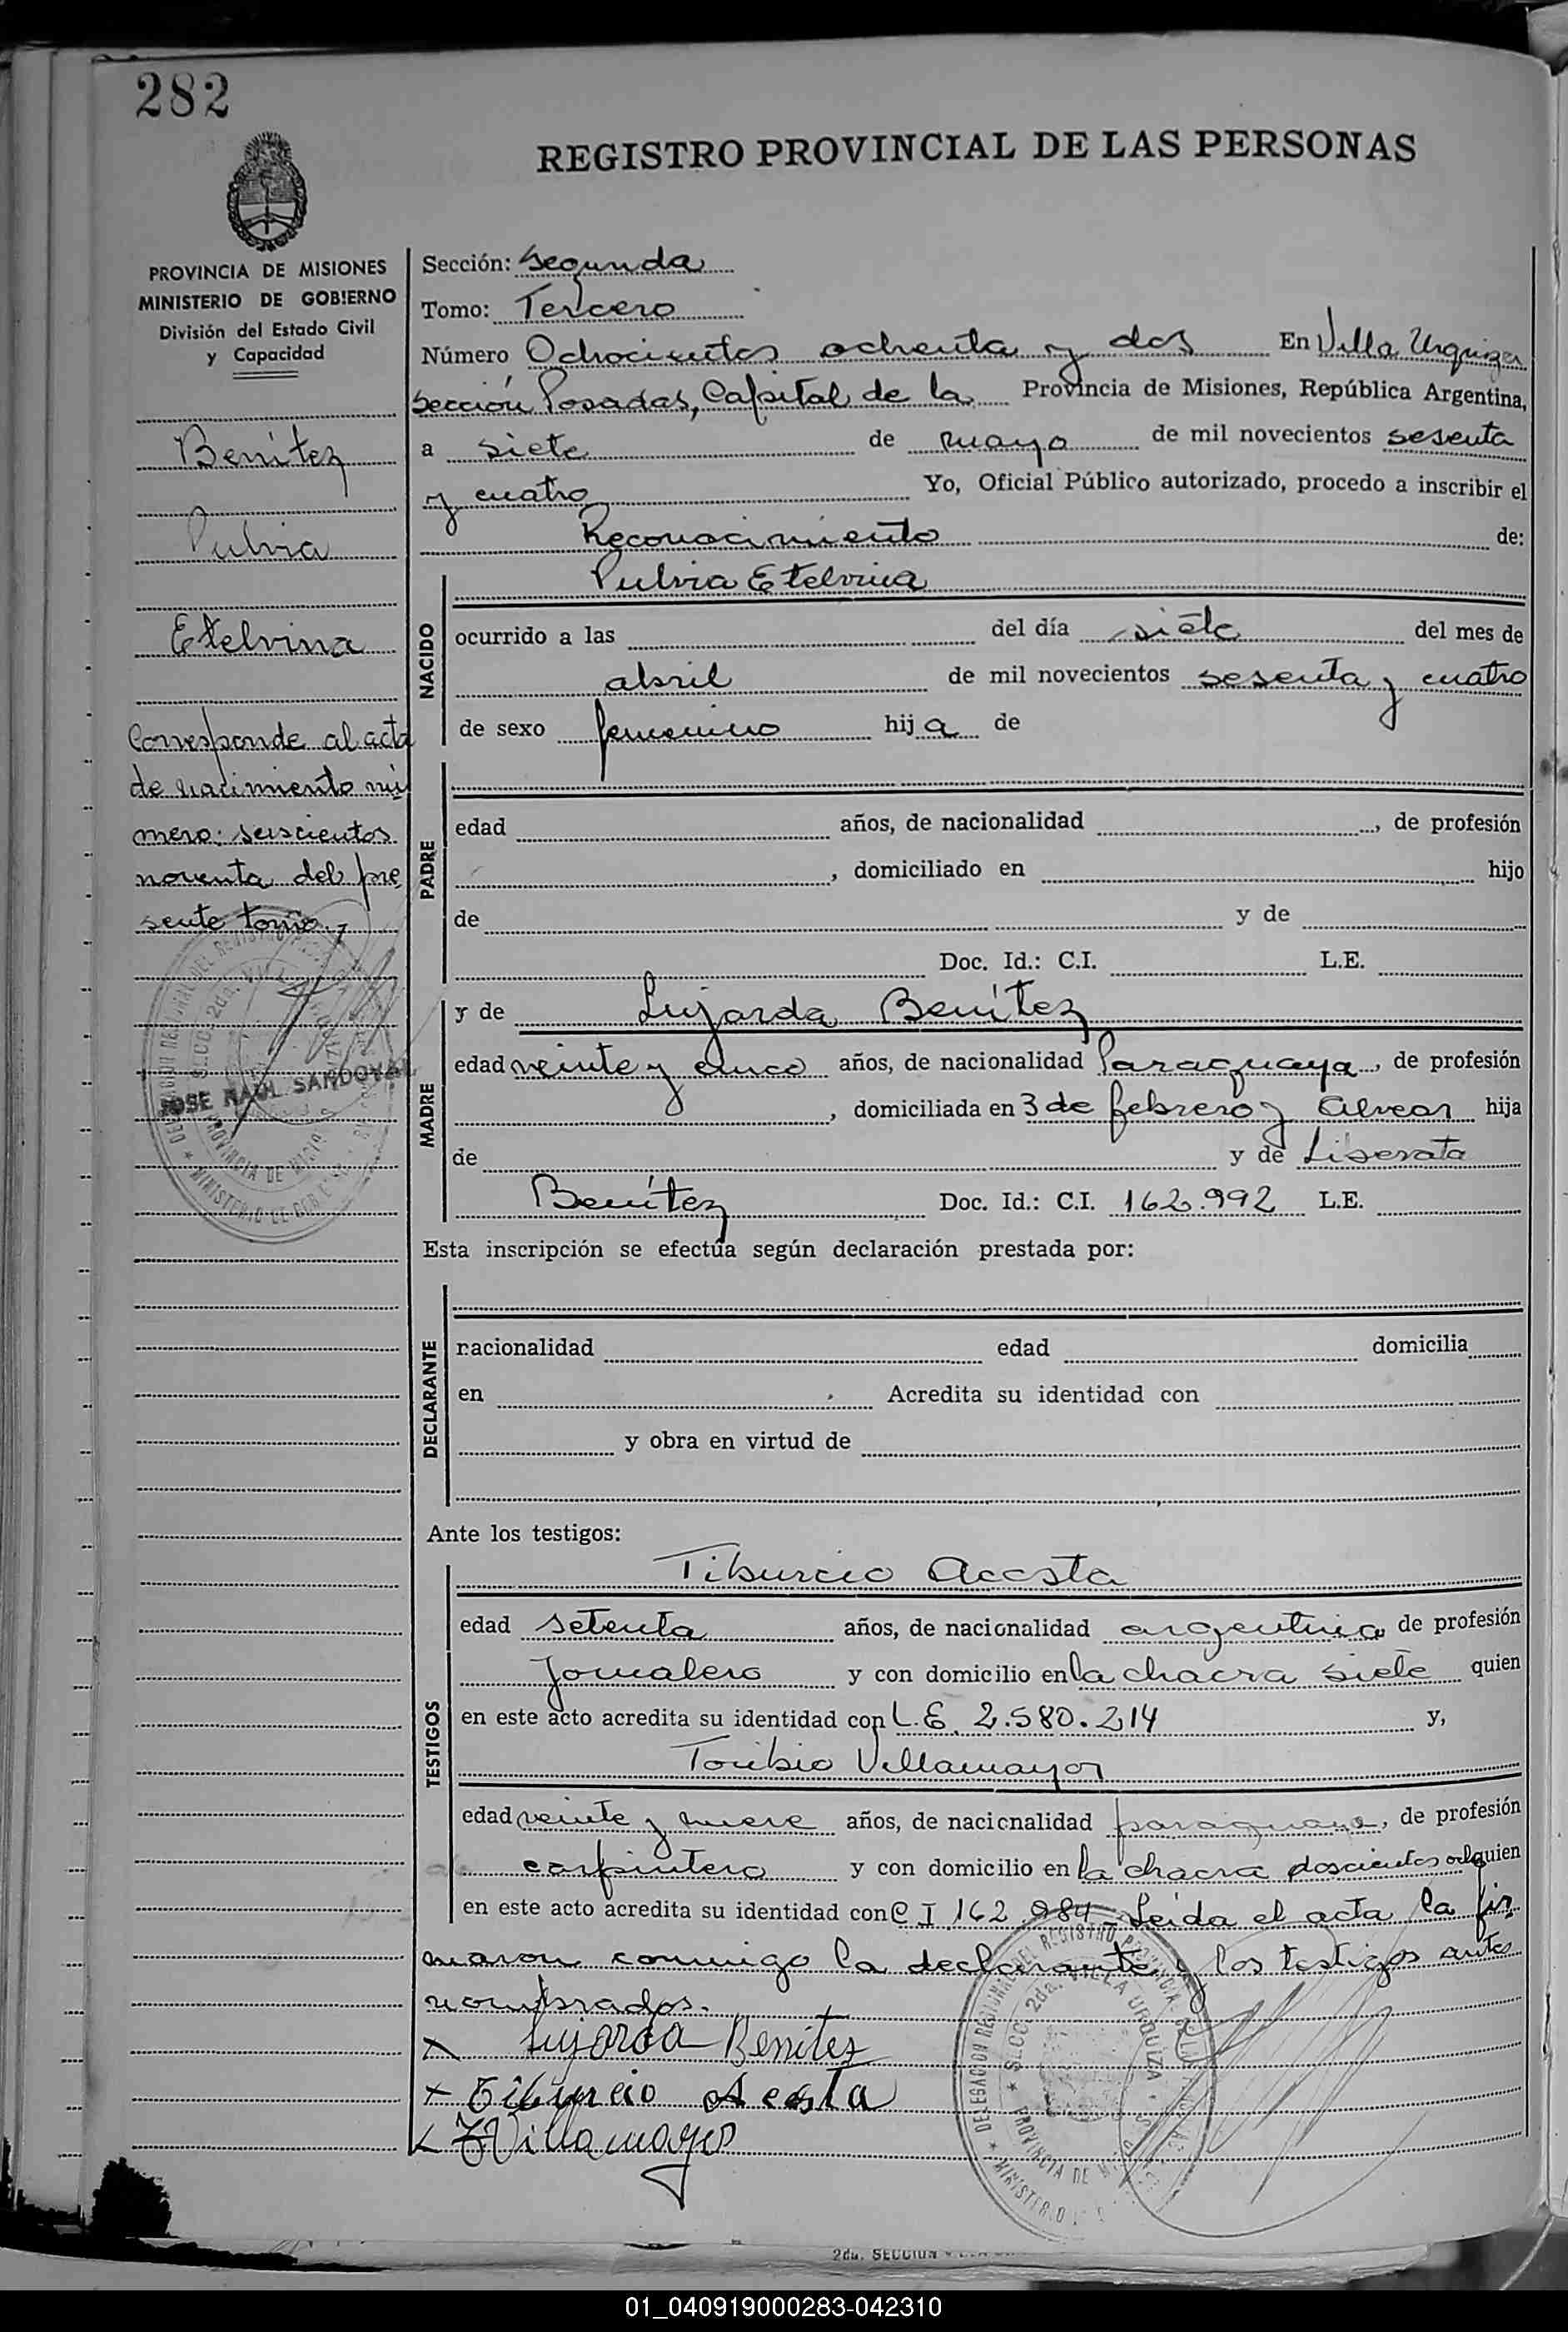 282
REGISTRO PROVINCIAL DE LAS PERSONAS
PROVINCIA DE MISIONES
MINISTERIO DE GOBIERNO
División del Estado Civil
y Capacidad
Benítez
Pulvia
Etelvina
Corresponde al acta
de nacimiento nú
mero: seiscientos
noventa del pre
sente tomo
JOSE RAUL SANDOVAL
Sección: Segunda
Tomo: Tercero
Número Ochocientos ochenta y dos En Villa Urquiza
Sección Posadas, Capital de la Provincia de Misiones, República Argentina,
a siete de mayo de mil novecientos sesenta
y cuatro Yo, Oficial Público autorizado, procedo a inscribir el
Reconocimiento de:
NACIDO
Pulvia Etelvina
ocurrido a las del día siete del mes de
abril de mil novecientos sesenta y cuatro
de sexo femenino hija de
PADRE
edad años, de nacionalidad , de profesión
, domiciliado en hijo
de y de
Doc. Id.: C.I. L.E.
MADRE
y de Lujarda Benítez
edad veinte y cinco años, de nacionalidad Paraguaya, de profesión
, domiciliada en 3 de febrero y Alvear hija
de y de Liberata
Benítez Doc. Id.: C.I. 162.992 L.E.
Esta inscripción se efectúa según declaración prestada por:
DECLARANTE
nacionalidad edad domicilia
en Acredita su identidad con
y obra en virtud de
Ante los testigos:
TESTIGOS
Tiburcio Acosta
edad setenta años, de nacionalidad argentina de profesión
Jornalero y con domicilio en la chacra siete quien
en este acto acredita su identidad con L.E. 2.580.214 y,
Toribio Villamayor
edad veinte y nueve años, de nacionalidad paraguaya, de profesión
carpintero y con domicilio en la chacra doscientos quien
en este acto acredita su identidad con C I 162.984 Leída el acta la fir
maron conmigo la declarante y los testigos antes
nombrados.
x Lujarda Benitez
x Tiburcio Acosta
x T Villamayor
DELEGACION REGIONAL DEL REGISTRO PROVINCIAL
SECC. 2da. VILLA URQUIZA
PROVINCIA DE
MINISTERIO
2da. SECCION
01_040919000283-042310